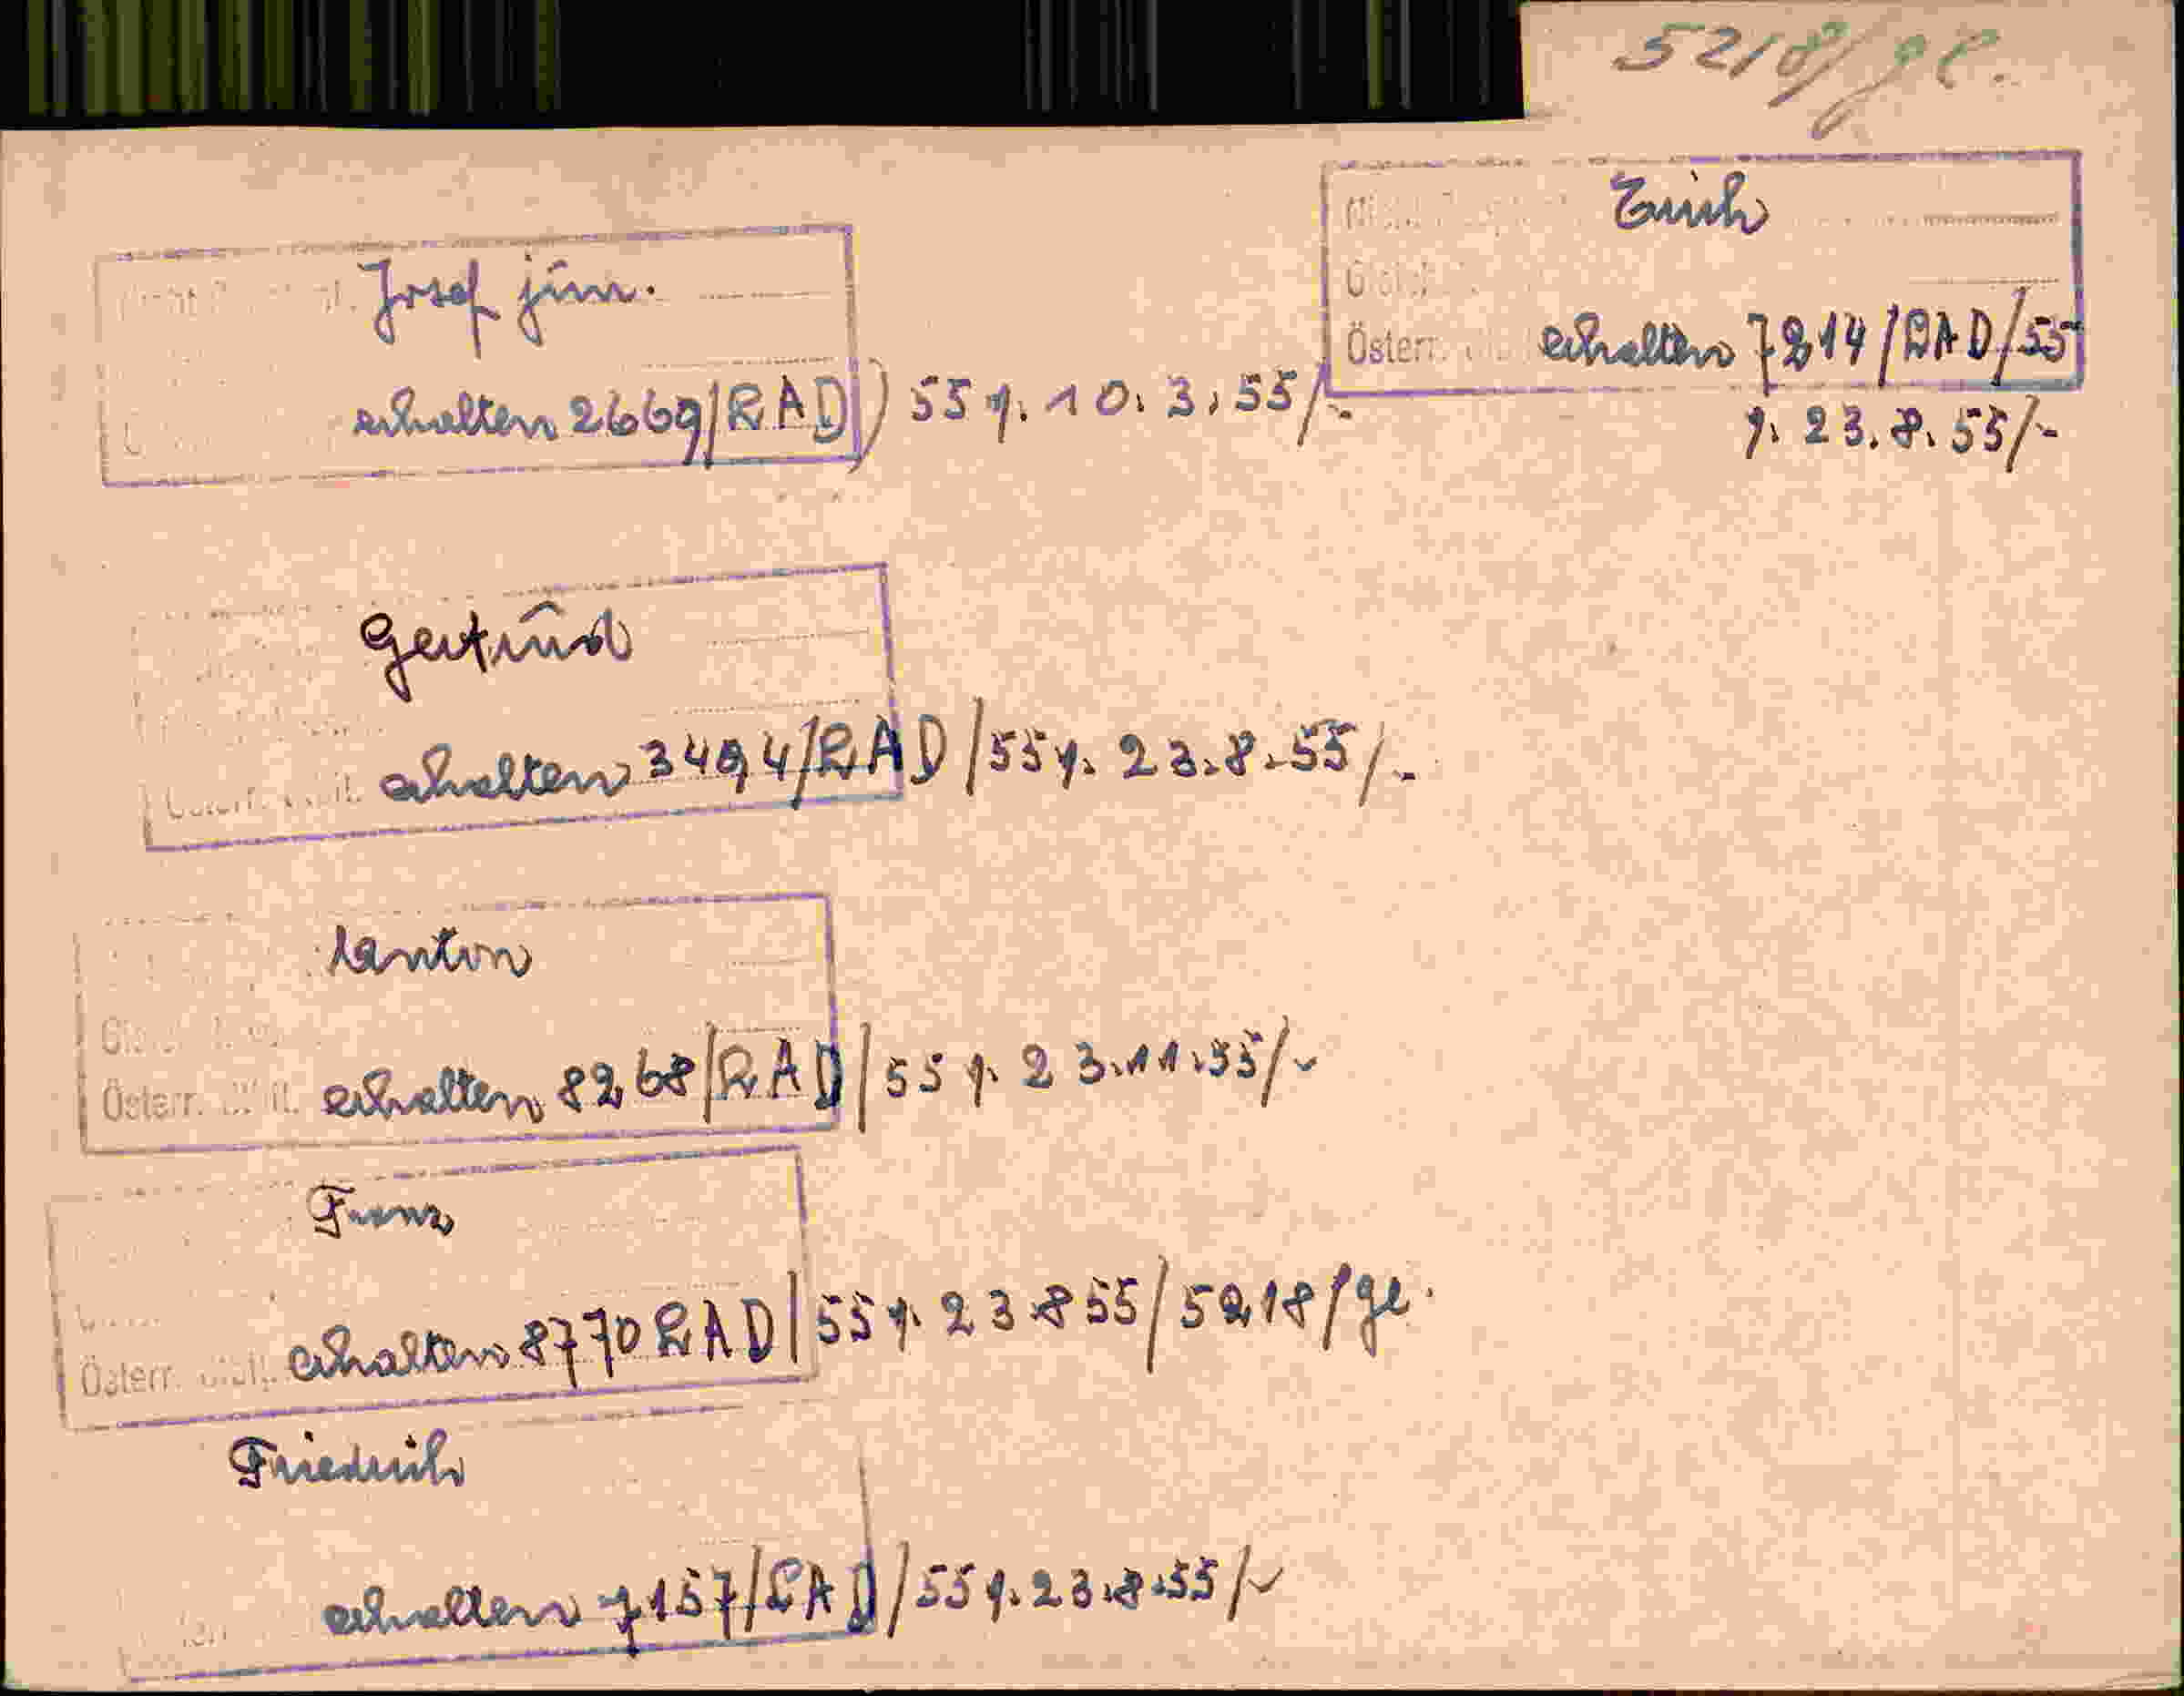 5218/ge.
Erich
Österr. erhalten 7214/RAD/55
v. 23.8.55/-
Josef jun.
erhalten 2669/RAD/55 v. 10.3.55/-
Gertrud
Österr. erhalten 3494/RAD/55 v. 23.8.55/-
Anton
Österr. erhalten 8268/RAD/55 v. 23.11.55/-
Franz
Österr. erhalten 8770 RAD/55 v. 23.8 55/5218/ge.
Friedrich
erhalten 7157/RAD/55 v. 23.8.55/-